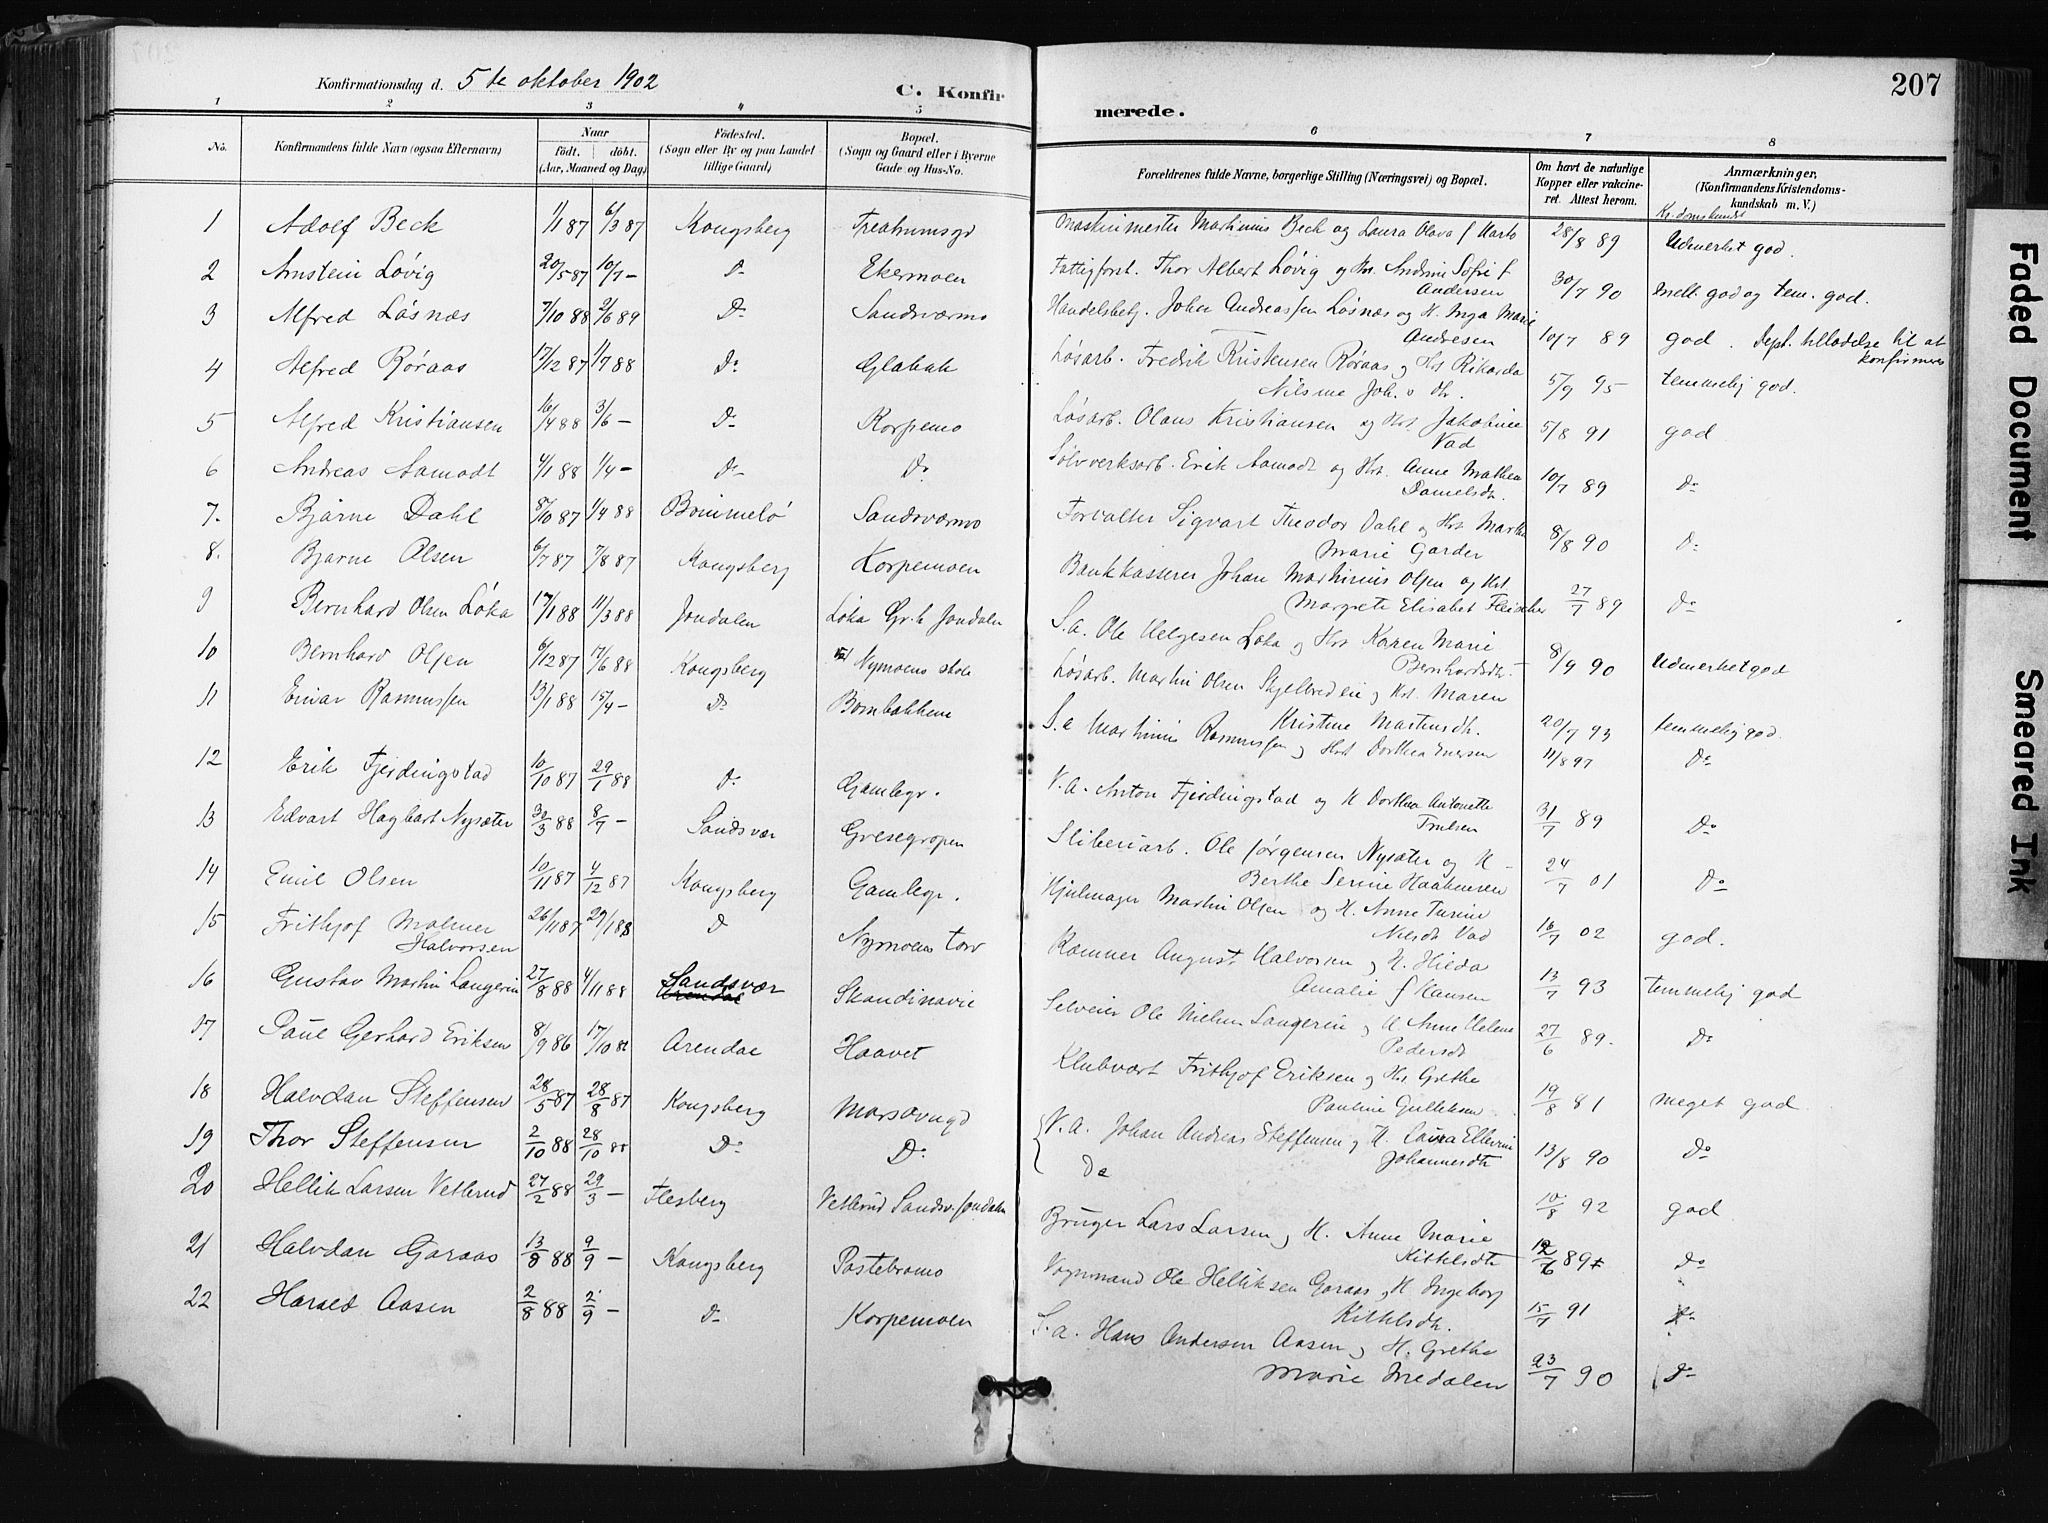 207
Konfirmationsdag d. 5te oktober 1902
C. Konfirmerede.
1 2 3 " 5 6 7 8
No.
Konfirmandens fulde Navn (ogsaa Efternavn)
Naar
födt. döbt.
(Aar, Maaned og Dag)
Födested.
(Sogn eller By og paa Landet
tillige Gaard)
Bopæl.
(Sogn og Gaard eller i Byerne
Gade og Hus-No.
Forældrenes fulde Navne, borgerlige Stilling (Næringsvei) og Bopæl.
Om havt de naturlige
Kopper eller vakcine-
ret. Attest herom.
Anmærkninger.
(Konfirmandens Kristendoms-
kundskab m. V.)
Kr.domskundsk
1 Adolf Beck 1/1 87 6/3 87 Kongsberg Maskinmester Martinius Beck og Laura Olava f 28/8 89 Udmerket god.
2 Arnstein Løvig 20/5 87 10/7 – Do Ekermoen Fattigforst. Thor Albert Løvig og Andrine Sofie f Andersen 30/7 90 Mell. god og tem. god.
3 Alfred Løsnæs 7/10 88 2/6 89 Do Sandsværmo Handelsbetj. Johan Andreassen Løsnæs og H. Inga Marie Andresen 10/7 89 god. Dept. tilladelse til at konfirmeres
4 Alfred Røraas 17/12 87 1/7 88 Do Glabak Løsarb. Fredrik Kristensen Røraas og Hst Rikarda Nilsine Joh. 5/9 95 temmelig god.
5 Alfred Kristiansen 16/4 88 3/6 – Do Korpemo Løsarb. Olaus Kristiansen og Hst. Jakobine Vad 5/8 91 god
6 Andreas Aamodt 4/1 88 1/4 – Do Do Sølvverksarb. Erik Aamodt og Hst. Anne Mathea Danielsdt. 10/7 89 Do
7. Bjarne Dahl 8/10 87 1/4 88 Bömmelö Sandsværmo Forvalter Sigvart Theodor Dahl og Hst Martha Marie Garder 8/8 90 Do
8. Bjarne Olsen 6/7 87 7/8 87 Kongsberg Korpemoen Bankkasserer Johan Martinius Olsen og Hst Margrete Elisabet Fleischer 27/7 89 Do
9 Bernhard Olsen Løka 17/1 88 11/3 88 Jondalen Løka Gr.b Jondalen S.a. Ole Helgesen Løka og Hst Karen Marie Bernhardsdtr. 8/9 90 Udmerket god
10 Bernhard Olsen 6/12 87 17/6 88 Kongsberg Nymoens skole Løsarb. Martin Olsen og Hst. Maren Kristine Martinsdt. 20/7 93 temmelig god.
11 Einar Rasmussen 13/1 88 15/4 – Do Bombakkene S.a Martinius Rasmussen og Hst Dorthea Enersen 11/8 97 Do
12 Erik Fjerdingstad 10/10 87 29/1 88 Do Gamlegr. V.A. Anton Fjerdingstad og H Dorthea Antonette Trulsen 31/7 89 Do
13 Edvart Hagbart Nysæter 30/3 88 8/7 – Sandsvær Gresegropen Sliberiarb. Ole Jørgensen Nysæter og H – Berthe Serine Haakensen 24/7 01 Do
14 Emil Olsen 10/11 87 4/12 87 Kongsberg Gamlegr. Hjulmager Martin Olsen og H. Anne Turine Nilsdt Vad 16/7 02 god.
15 Frithjof Malmer Halvorsen 26/11 87 29/1 88 D Nymoens torv Kæmner August Halvorsen og H. Hilda Amalie f Hansen 13/7 93 temmelig god
16 Gustav Martin Langerin 27/8 88 4/11 88 Sandsvær Arendal Skandinavie Selveier Ole Nielsen Langerin og H Anne Helene Pedersdt 27/6 89. Do
17 Paul Gerhard Eriksen 8/9 86 17/10 86 Arendal Haavet Klubvært Frithjof Eriksen og Hst Grethe Pauline Gulliksen 19/8 81 meget god.
18 Halvdan Steffensen 28/5 87 28/8 87 Kongsberg V.A. Johan Andreas Steffensen og H. Laura Ellevine Johannesdt 13/8 90 Do
19 Thor Steffensen 2/10 88 28/10 88 Do Do Do 10/8 92 god
20 Hellik Larsen Vetlerud 27/2 88 29/3 – Flesberg Vetlerud Sandsv. Jondalen Bruger Lars Larsen og H. Anne Marie Kittelsdt 12/6 89 Do
21 Halvdan Garaas 13/8 88 9/9 – Kongsberg Pastebromo Vognmand Ole Helliksen Garaas og H Ingeborg Kittelsdt. 15/7 91 Do
22 Harald Aasen 2/8 88 2/9 – Do Korpemoen S.a. Hans Andersen Aasen og H. Grethe Marie Medalen 23/7 90 Do
Faded Document
Smeared Ink